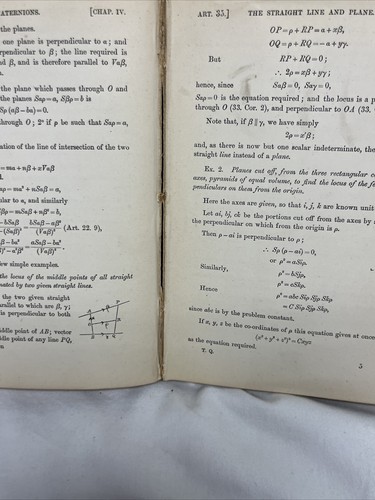 ATERNIONS. [CHAP. IV.
the planes.
one plane is perpendicular to α; and
rpendicular to β; the line required is
nd β, and is therefore parallel to Vαβ,
the plane which passes through O and
the planes Sαρ=a, Sβρ=b is
Sρ (aβ−bα)=0.
through O; 2° if ρ be such that Sαρ=a,
ation of the line of intersection of the two
=mα+nβ+xVαβ
αρ=mα²+nSαβ=a,
ular to α, and similarly
βρ=mSαβ+nβ²=b,
(Art. 22. 9),
ew simple examples.
the locus of the middle points of all straight
nated by two given straight
the two given straight
parallel to which are β, γ;
is perpendicular to both
iddle point of AB; vector
ddle point of any line PQ,
ART. 35.] THE STRAIGHT LINE AND PLANE.
OP=ρ+RP=α+xβ,
OQ=ρ+RQ=−α+yγ.
But RP+RQ=0;
∴ 2ρ=xβ+yγ;
hence, since Sαβ=0, Sαγ=0,
Sαρ=0 is the equation required; and the locus is a p
through O (33. Cor. 2), and perpendicular to OA (33.
Note that, if β ∥ γ, we have simply
2ρ=x'β;
and, as there is now but one scalar indeterminate, the
straight line instead of a plane.
Ex. 2. Planes cut off, from the three rectangular co
axes, pyramids of equal volume, to find the locus of the fe
pendiculars on them from the origin.
Here the axes are given, so that i, j, k are known unit
Let ai, bj, ck be the portions cut off from the axes by a
the perpendicular on which from the origin is ρ.
Then ρ−ai is perpendicular to ρ;
∴ Sρ (ρ−ai)=0,
or ρ²=aSiρ.
Similarly, ρ²=bSjρ,
ρ²=cSkρ.
Hence ρ⁶=abc Siρ Sjρ Skρ
=C Siρ Sjρ Skρ,
since abc is by the problem constant.
If x, y, z be the co-ordinates of ρ this equation gives at once
(x²+y²+z²)³=Cxyz
as the equation required.
T. Q. 5